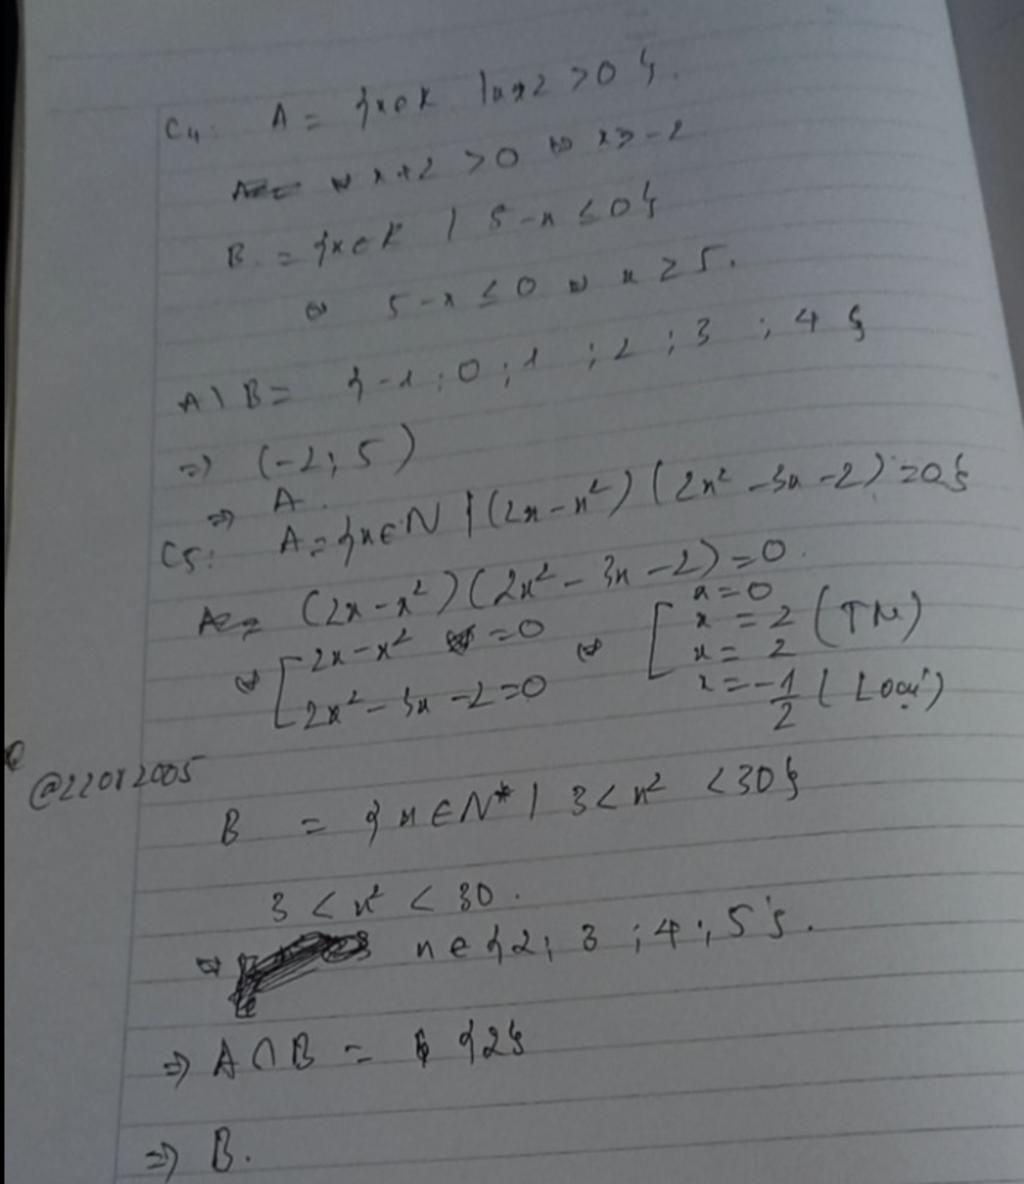 C4: A = {x ∈ R | x+2 > 0}.
⇔ x+2 > 0 ⇔ x > -2
B = {x ∈ R | 5-x ≤ 0}
⇔ 5-x ≤ 0 ⇔ x ≥ 5.
A \ B = {-1; 0; 1; 2; 3; 4}
=> (-2; 5)
=> A.
C5: A = {x ∈ N | (2x-x²)(2x²-3x-2) = 0}
(2x-x²)(2x²-3x-2) = 0.
⇔ [2x-x² = 0 ⇔ [x = 0
x = 2 (TM)
2x²-3x-2 = 0 x = 2
x = -1/2 (Loại)
@22082005
B = {x ∈ N* | 3 < x² < 30}
3 < x² < 30.
⇔ x ∈ {2; 3; 4; 5}.
=> A ∩ B = {2}
=> B.